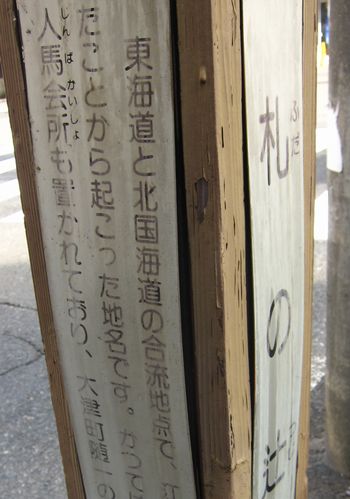 札の辻
ふだ
東海道と北国海道の合流地点で、
たことから起こった地名です。かつて
人馬会所も置かれており、大津町随一の
じんばかいしょ